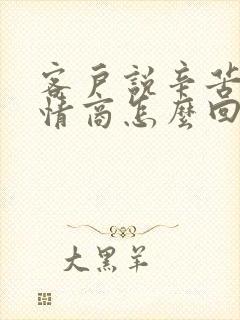 客戶說辛苦
情商怎麼回
大黑羊